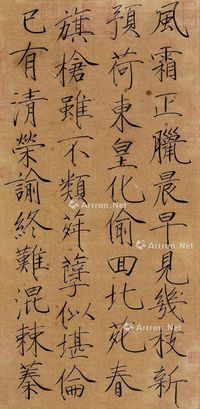 風霜正臘晨早見幾枝新
預荷東皇化偷回北苑春
旗槍雖不類荈孽似堪倫
已有清榮諭終難混棘蓁
Artron.Net
Artron.Net
Artron.Net
Artron.Net